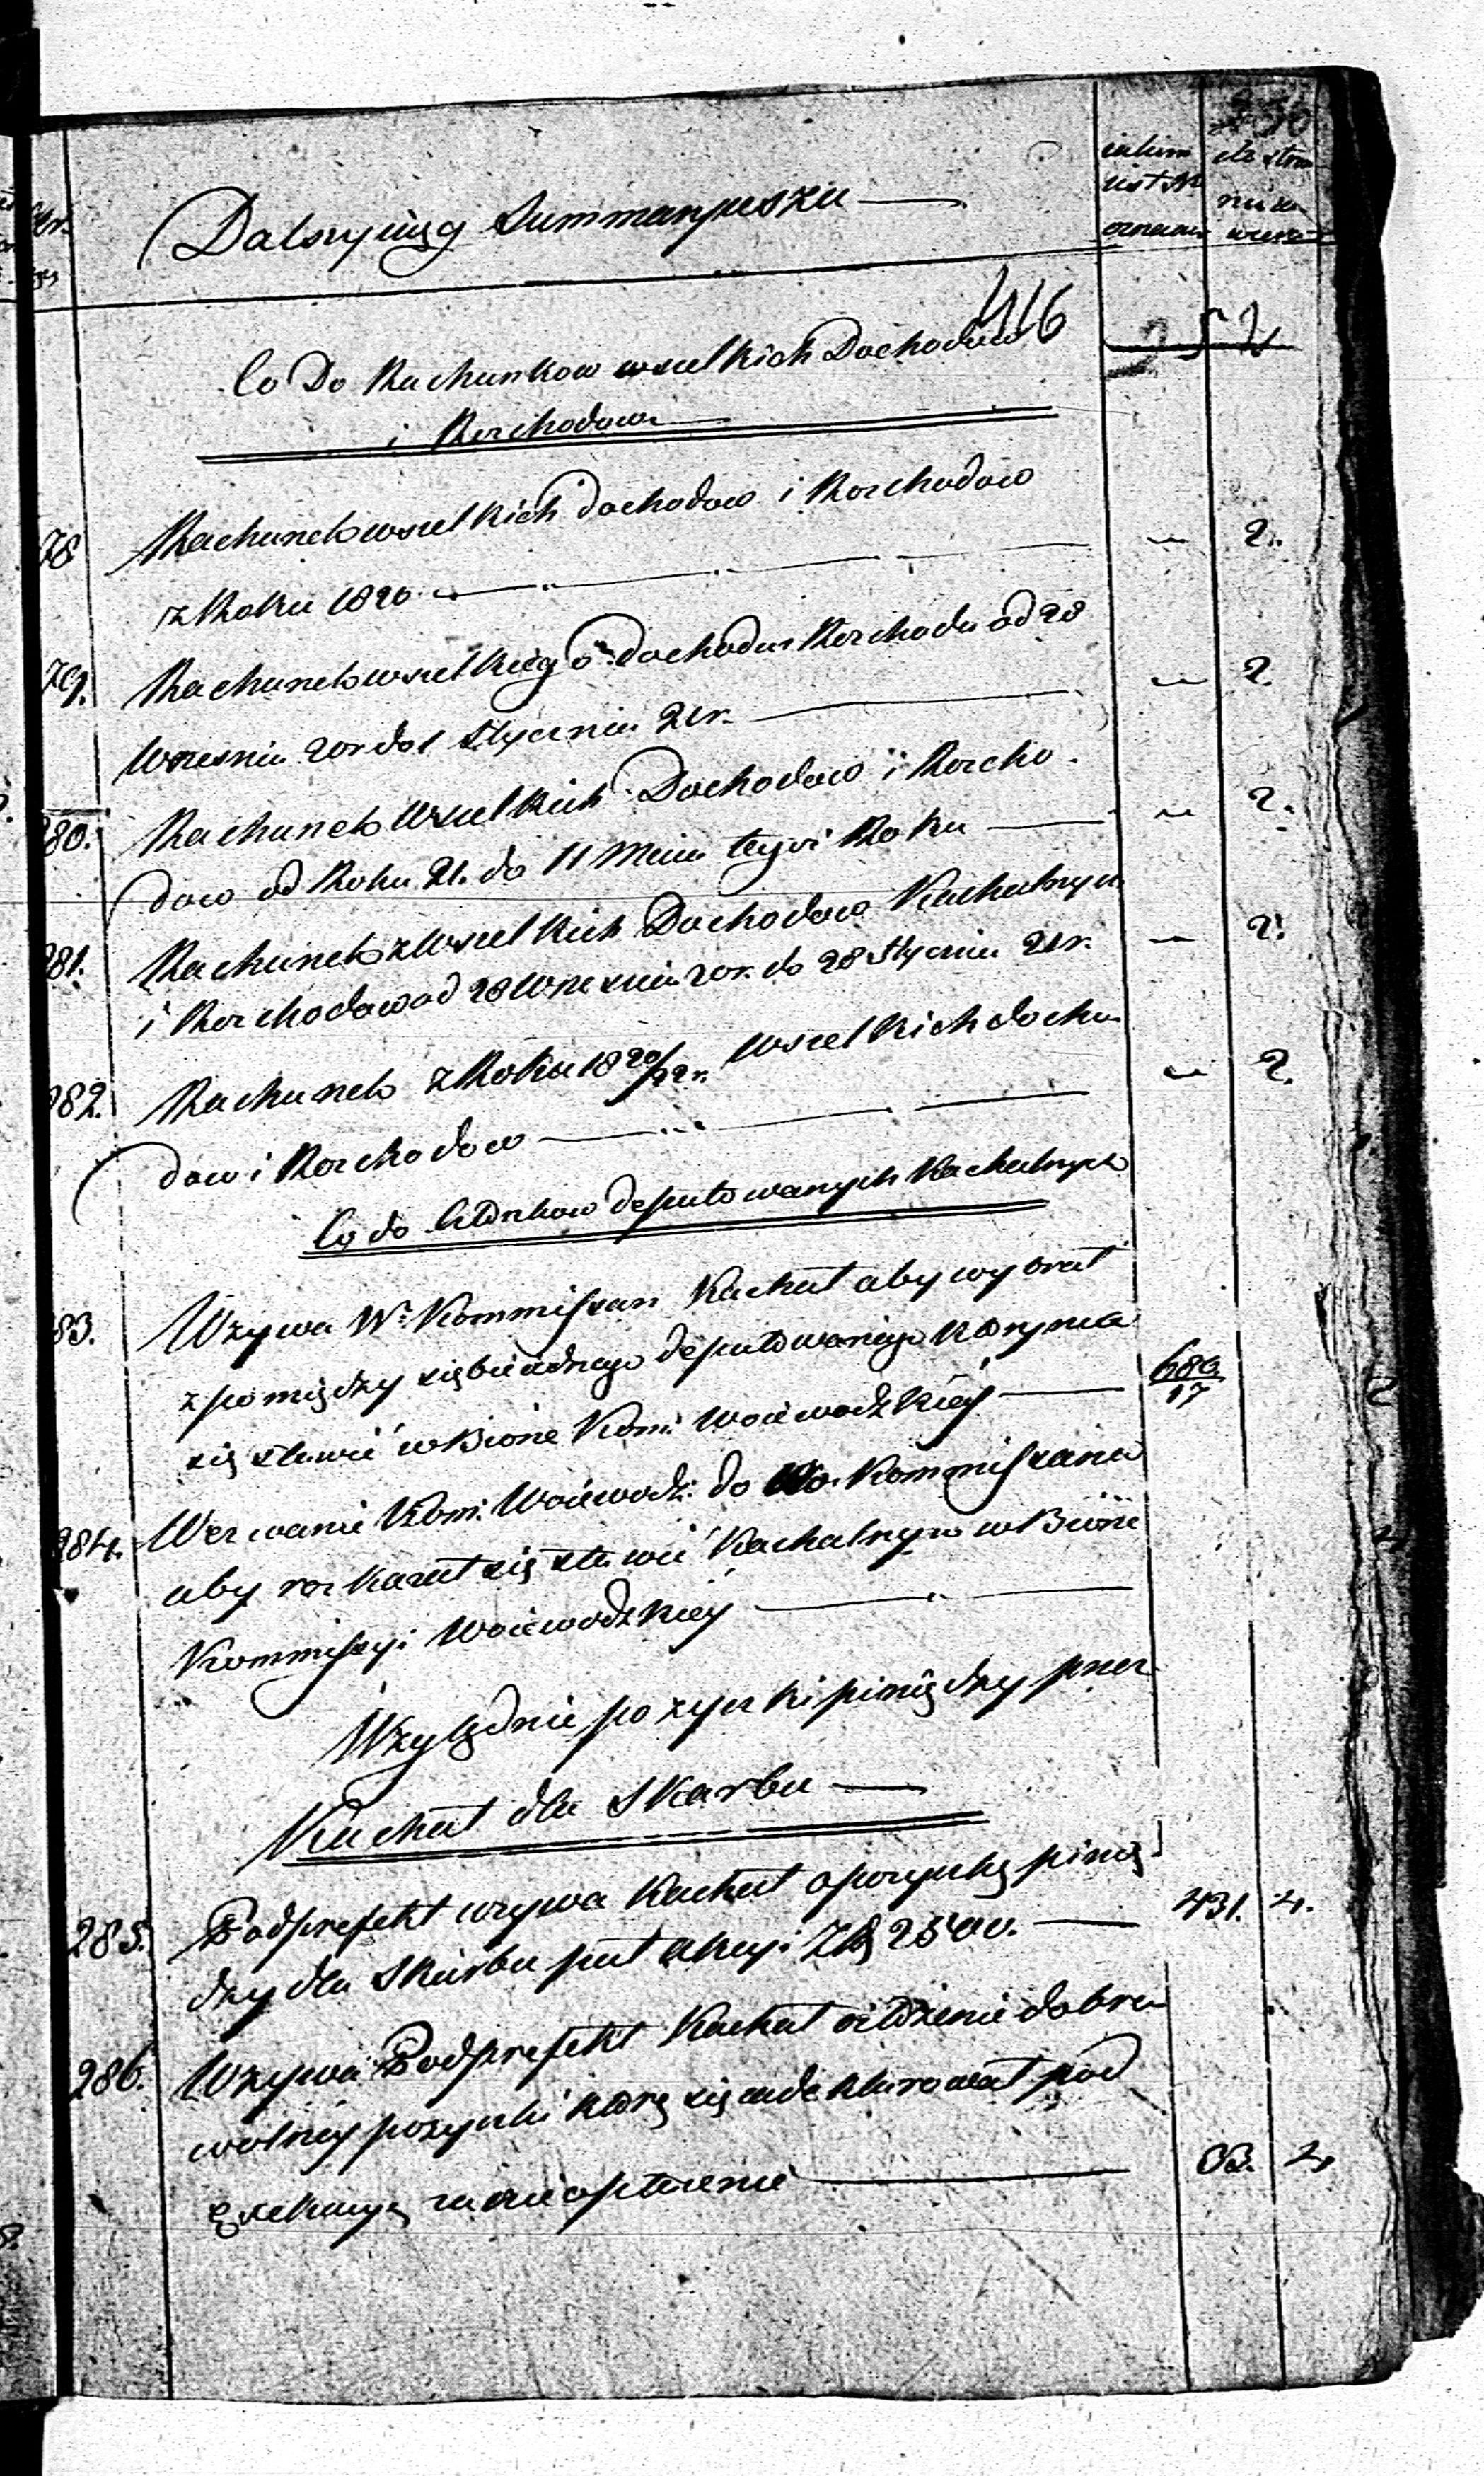 Dalszy ciąg Summaryuszu
iakim
List №
oznaczon
ile stron
416
Co Do Rachunkow wszelkich Dochodow
i Rozchodow
78 Rachunek wszelkich dochodow i Rozchodow
z Roku 1820 2.
79. Rachunek wszelkiego dochodu i Rozchodu od 28
Wrzesnia 20r. do 1 Stycznia 21r. 2.
280. Rachunek Wszelkich Dochodow i Rozcho-
dow od Roku 21. do 11 Maia tegoż Roku 2.
281. Rachunek z Wszelkich Dochodow Kachalnych
i Rozchodow od 28 Wrzesnia 20r. do 28 Stycznia 21r. 2.
282. Rachunek z Roku 1820/22r. Wszelkich docho-
dow i Rozchodow 2.
Co do Członkow deputowanych Kachalnych
83. Wzywa W. Kommissarz Kachał aby wybrał
z pomiędzy siebie iednego deputowanego który ma
się stawić w Biórze Kom: Woiewodzkiéy 17
284. Wezwanie Kom: Woiewodz: do Kommissarza
aby rozkazał się stawić Kachalnym w Biórze
Kommissyi Woiewodzkiéy
Względnie pożyczki pieniędzy przez
Kachał dla Skarbu
285. Podprefekt wzywa Kachał o pożyczkę pienię-
dzy dla Skarbu puł akcyi Zł 2500. 431. 4.
286. Wzywa Podprefekt Kachał o złożenie dobro-
wolnéy pożyczki którą się zadeklarował pod
Exekucyą za nieopłacenie